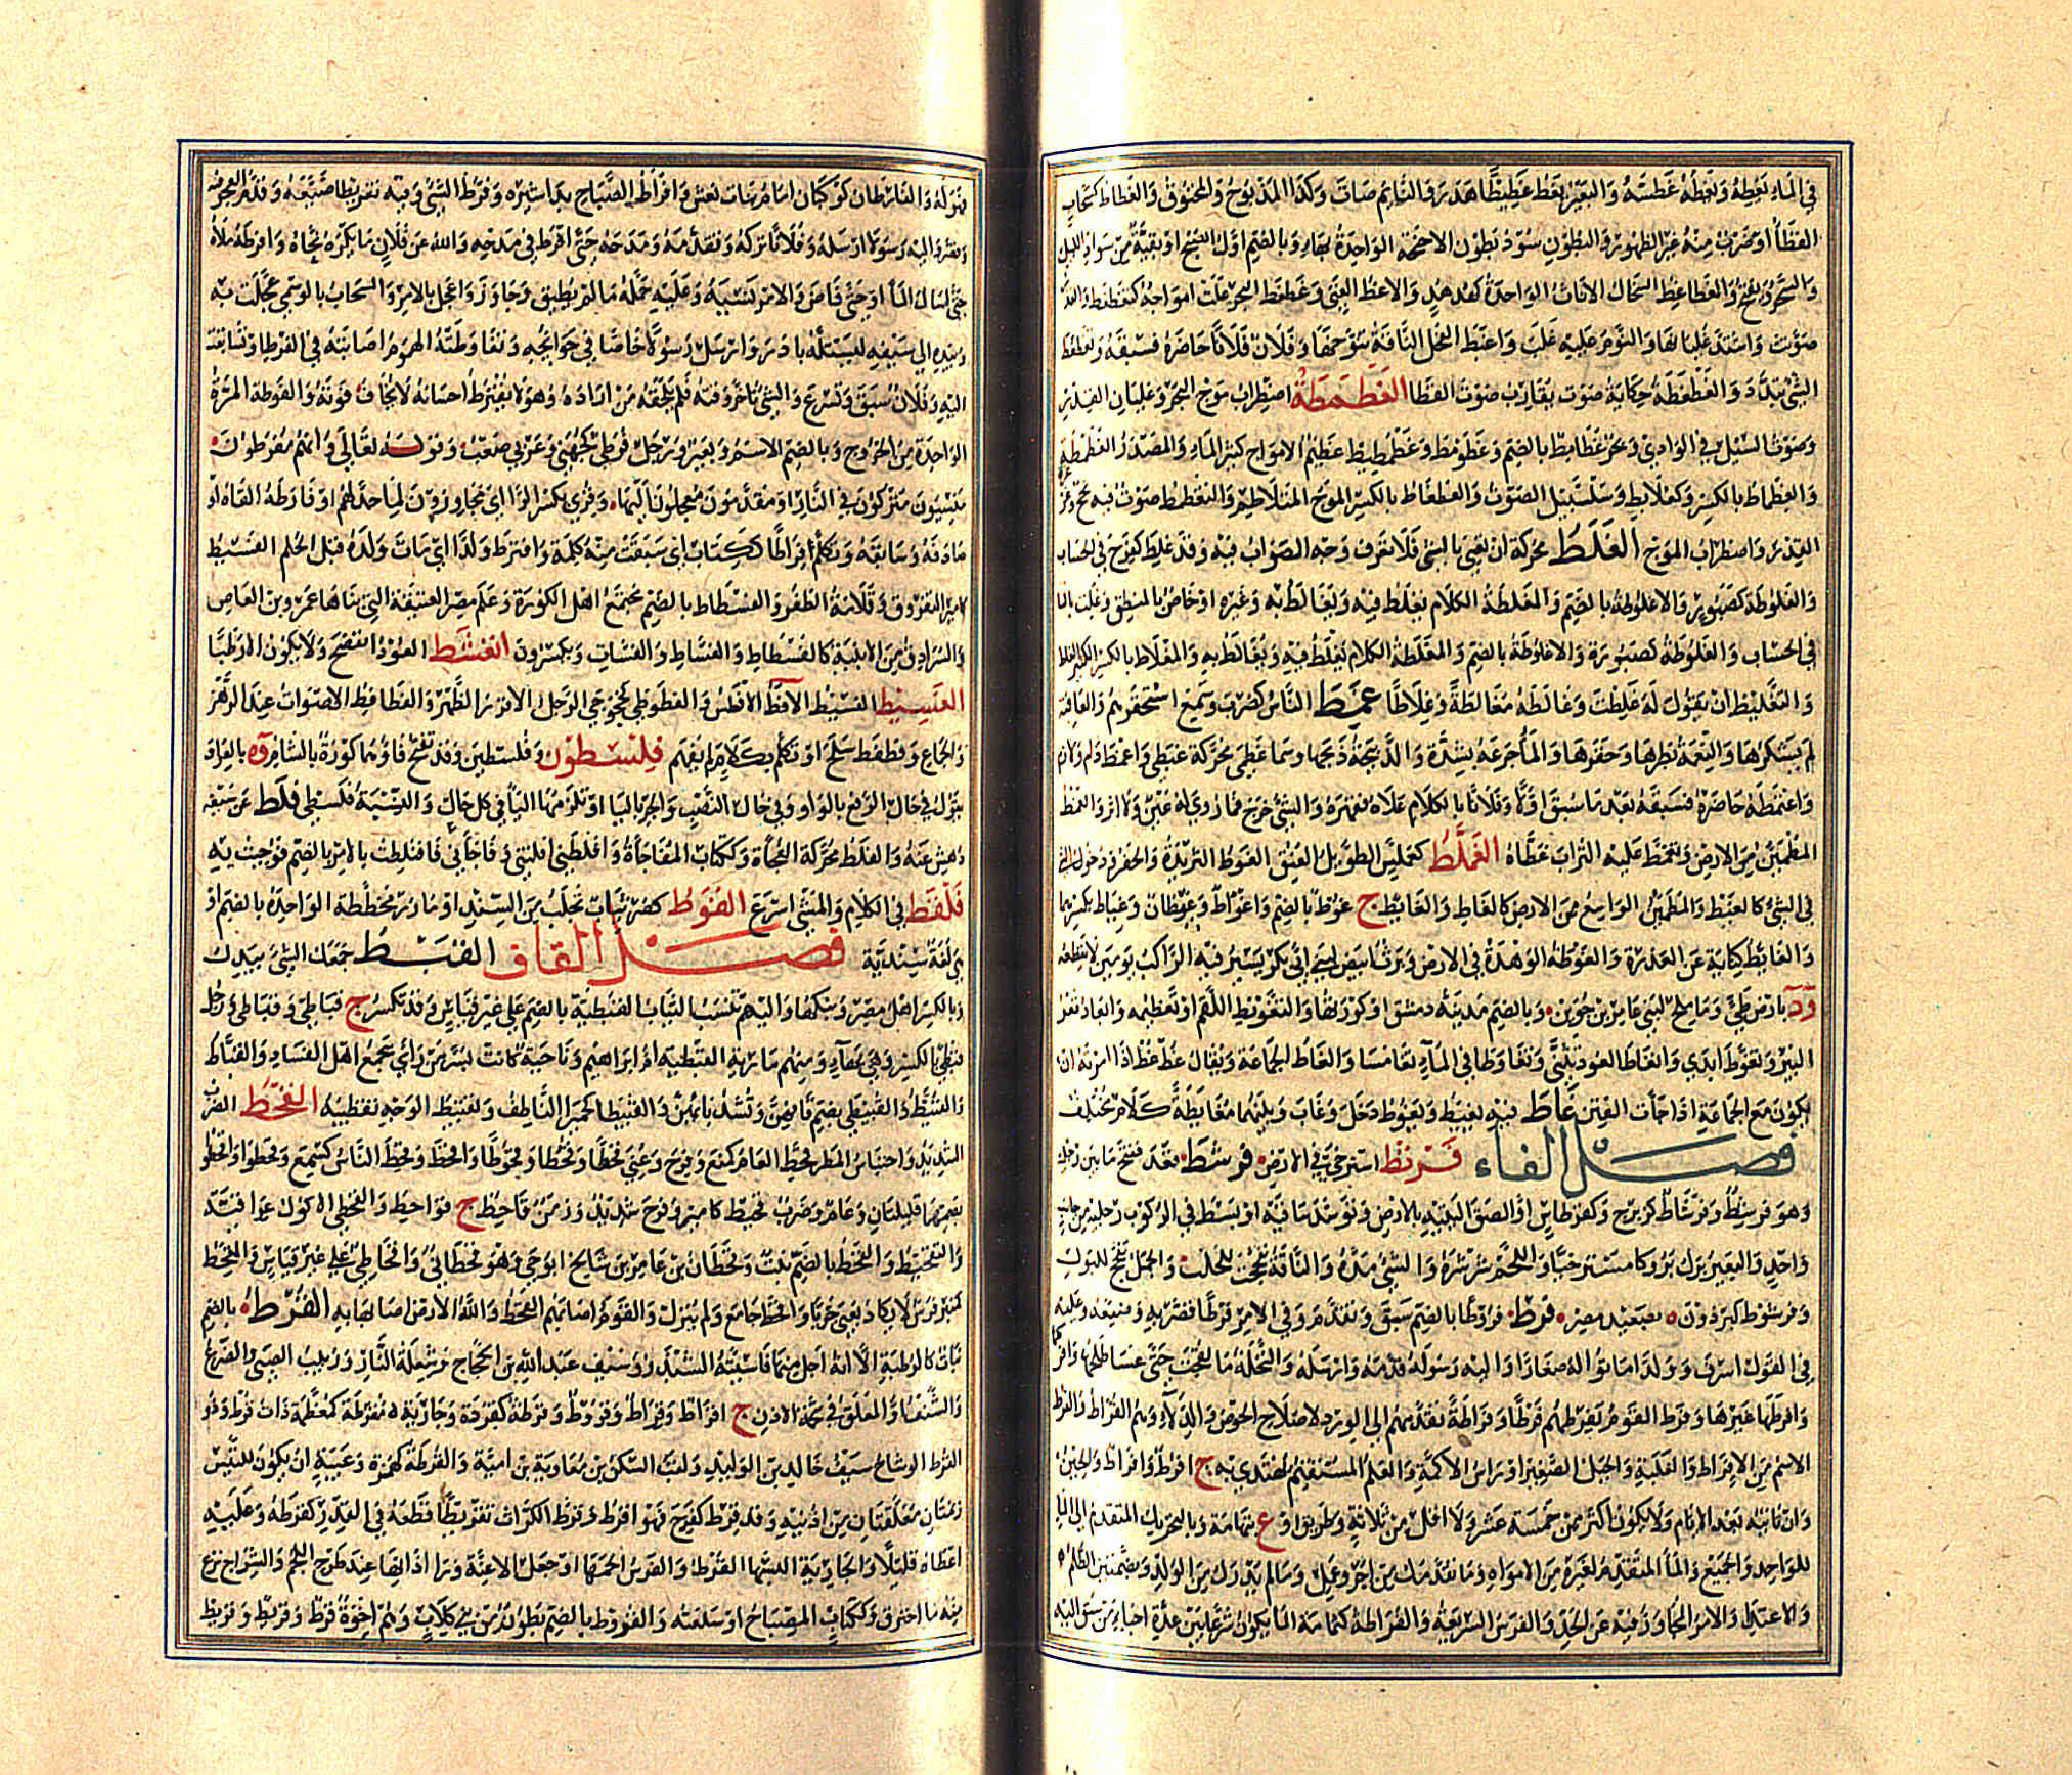 في الماء يغطه ويغطه غطسه والبعير يغط غطيطا هدر والنائم صات وكذا المذبوح والمخنوق والغطاط كسحاب
القطا أو ضرب منه غبر الظهور والبطون سود بطون الاجنحة الواحدة بهاء وبالضم أول الصبح أو بقية من سواد الليل
والسحر ويفتح والغطاغط السخال الاناث الواحدة كهدهد والاغط الغني وغطغط البحر علت أمواجه كتغطغط والقدر
صوتت واشتد غليانها والنوم عليه غلب واغتط الفحل الناقة تنوخها وفلان فلانا حاضره فسبقه وتغطغط
الشيء تبدد والغطغطة حكاية صوت يقارب صوت القطا الغطمطة اضطراب موج البحر وغليان القدر
وصوت السيل في الوادي وبحر غطامط بالضم وغطومط وغطمطيط عظيم الامواج كثير الماء والمصدر الغطمطة
والغطماط بالكسر وكعلابط وسلسبيل الصوت والغطماط بالكسر الموج المتلاطم والتغطمط صوت فيه بحح وغرغرة
القدر واضطراب الموج الغلط محركة أن تعيى بالشيء فلا تعرف وجه الصواب فيه وقد غلط كفرح في الحساب
في الحساب والغلوطة كصبورة والاغلوطة بالضم والمغلطة الكلام يغلط فيه ويغالط به والمغلاط بالكسر الكثير الغلط
والتغليط ان يقول له غلطت وغالطه مغالطة وغلاطا غمط الناس كضرب وسمع استحقرهم والعافية
لم يشكرها والنعمة بطرها وحقرها والماء جرعه بشدة والذبيحة ذبحها وسماء غمطى محركة غبطى واغمط دام ولازم
واغتمطه حاضره فسبقه بعد ما سبق أولا وفلانا بالكلام علاه فقهره والشيء خرج فما رؤي له عين ولا أثر والغمط
المطمئن من الارض وتغمط عليه التراب غطاه الغملط كعملس الطويل العنق الغوط الثريدة والحفر ودخول الشيء
في الشيء كالغيط والمطمئن الواسع من الارض كالغاط والغائط ج غوط بالضم وأغواط وغيطان وغياط بكسرهما
والغائط كناية عن العذرة والغوطة الوهدة في الارض وبرث أبيض لبني أبي بكر يسير فيه الراكب يومين لا يقطعه
ود بأرض طيئ وماء ملح لبني عامر بن جوين وبالضم مدينة دمشق أو كورتها والتغويط اللقم أو تعظيمه وابعاد قعر
البئر وتغوط أبدى وانغاط العود تثنى وتغاوطا في الماء تغامسا والغاط الجماعة ويقال غط غط اذا أمرته ان
يكون مع الجماعة اذا جاءت الفتن غاط فيه يغيط ويغوط دخل وغاب وبينهما مغايطة كلام مختلف
فصل الفاء فرنط استرخى في الارض فرشط قعد ففتح ما بين رجليه
وهو فرشط وفرشاط كزبرج وكقرطاس أو الصق أليتيه بالارض وتوسد ساقيه أو بسط في الركوب رجليه من جانب
واحد والبعير برك بروكا مسترخيا واللحم شرشره والشيء مده والناقة تفحجت للحلب والجمل تفحج للبول
وفرشوط كبرذون بصعيد مصر فرط فروطا بالضم سبق وتقدم وفي الامر فرطا قصر به وضيعه وعليه
في القول أسرف وولدا ماتوا له صغارا واليه رسوله قدمه وأرسله والنخلة ما لقحت حتى عسا طلعها وأفر
وافرطها غيرها وفرط القوم يفرطهم فرطا وفراطة تقدمهم الى الورد لاصلاح الحوض والدلاء وهم الفراط والفرط
الاسم من الافراط والغلبة والجبل الصغير أو رأس الاكمة والعلم المستقيم يهتدى به ج افرط وافراط والحين
وان تأتيه بعد الايام ولا يكون أكثر من خمسة عشر ولا أقل من ثلاثة وطريق أو ع بتهامة وبالتحريك المتقدم الى الماء
للواحد والجميع والماء المتقدم لغيره من الامواه وما تقدمك من أجر وعمل وما لم يدرك من الولد وبضمتين الظلم
والاعتداء والامر المجاوز فيه عن الحد والفرس السريعة والفراطة كثمامة الماء يكون شرعا بين عدة احياء من سبق اليه
فهو له والفارطان كوكبان أمام بنات نعش وافراط الصباح تباشيره وفرط الشيء وفيه تفريطا ضيعه وقدم العجز فيه
وقصر واليه رسولا أرسله وفلانا تركه وتقدمه ومدحه حتى أفرط في مدحه والله عن فلان ما يكره نحاه وافرطه ملأه
حتى أسال الماء أو حتى فاض والامر نسيه وعليه حمله ما لم يطيق وجاوز واعجل بالامر والسحاب بالوسمي عجلت به
وبيده الى سيفه ليستله بادر وارسل رسولا خاصا في حوائجه وتفارطته الهموم أصابته في الفرط أو تسابقت
اليه وفلان سبق وتسرع والشيء تأخر وقته فلم يلحقه من أراده وهو لا يفترط احسانه لا يخاف فوته والفرطة المرة
الواحدة من الخروج وبالضم الاسم وبعير ورجل فرطي كجهني وعربي صعب وقوله تعالى وانهم مفرطون
منسيون متروكون في النار أو مقدمون معجلون اليها وقرئ بكسر الراء أي مجاوزون لما حد لهم أو فارطه القاه أو
صادفه وسابقه وتكلم فراطا ككتاب أي سبقت منه كلمة وافترط ولدا أي مات ولده قبل الحلم الفسيط
كامير الثفروق وقلامة الظفر والفسطاط بالضم مجتمع أهل الكورة وعلم مصر العتيقة التي بناها عمرو بن العاص
والسرادق من الابنية كالفستاط والفساط والفسات ويكسرون انفشط العود انفضح ولا يكون الا رطبا
الفسيط الفسيط الافط الافطس والفطوطى كخجوجى الرجل الافزر الظهر والفطافط الاصوات عند الرهز
والجماع وفطفط سلح أو تكلم بكلام لم يفهم فلسطون وفلسطين وقد تفتح فاؤهما كورة بالشام وة بالعراق
يقول في حال الرفع بالواو وفي حال النصب والجر بالياء أو تلزمها الياء في كل حال والنسبة فلسطي فلط عن سيفه
دهش عنه والفلط محركة الفجأة وككتاب المفاجأة وافلطني افلتني وفاجأني فافتلطت بالامر بالضم فوجئت به
فلفط في الكلام والمشي أسرع الفوط كصرد ثياب تجلب من السند أو مآزر مخططة الواحدة بالضم أو
هي لغة سندية فصل القاف القبط جمعك الشيء بيدك
وبالكسر أهل مصر وبنكها واليهم تنسب الثياب القبطية بالضم على غير قياس وقد تكسر ج قباطي وقباطي ورجل
قبطي بالكسر وهي بهاء ومنهم مارية القبطية أم ابراهيم وناحية كانت بسر من رأى تجمع أهل الفساد والقباط
والقبيط والقبيطى بضم قافهن وتشد باءهن والقبيطاء كحميراء الناطف وتقبيط الوجه تقطيبه القحط الضرب
الشديد واحتباس المطر قحط العام كمنع وفرح وعني قحطا وقحطا وقحوطا واقحط وقحط الناس كسمع وقحطوا واقحطوا
بضمهما قليلتان وعام وضرب قحيط كامير وقرح شديد وزمن قاحط ج قواحط والقحطي الاكول عراقية
والتقحيط والقحط بالضم نبت وقحطان بن عامر بن شالخ أبو حي وهو قحطاني واقحاطي على غير قياس والمقحط
كمنبر فرس لا يكاد يعيى جريا واقحط جامع ولم ينزل والقوم أصابهم القحط والله الارض أصابها به القرط بالضم
نبات كالرطبة الا انه أجل منها فارسيته الشبذر وسيف عبد الله بن الحجاج وشعلة النار وزبيب الصبي والضرع
والشنف أو المعلق في شحمة الاذن ج اقراط وقراط وقروط وقرطة كقردة وجارية مقرطة كمعظمة ذات قرط وذو
القرط الوشاح سيف خالد بن الوليد ولقب السكن بن معاوية بن أمية والقرطة كهمزة وعنبة ان يكون للتيس
زنمتان معلقتان من أذنيه وقد قرط كفرح فهو أقرط وقرط الكراث تقريطا قطعه في القدر كقرطه وعليه
أعطاه قليلا والجارية البسها القرط والفرس الجمها أو جعل الاعنة وراء آذانها عند طرح اللجم والسراج نزع
منه ما احترق وككتاب المصباح أو شعلته والقروط بالضم بطون من بني كلاب وهم اخوة قرط وقريط وقريط